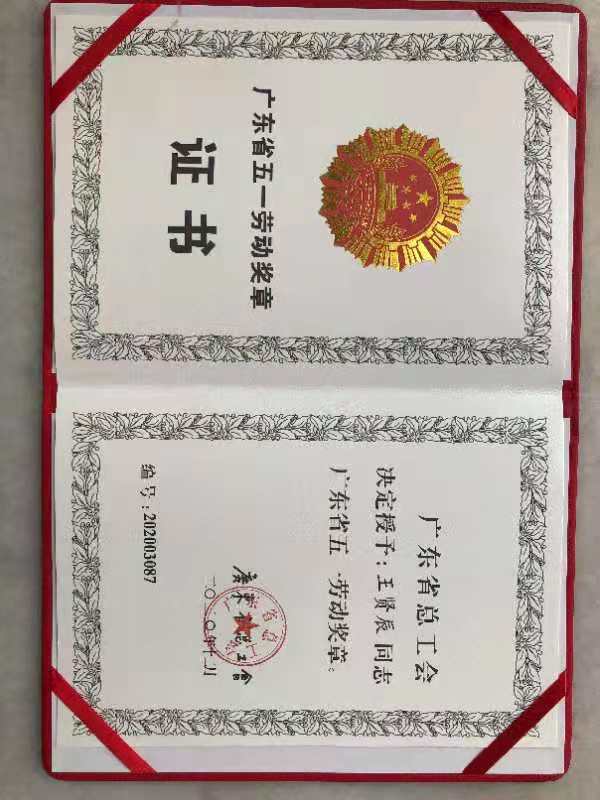 广东省五一劳动奖章
证书
广东省总工会
决定授予：王贤辰同志
广东省五一劳动奖章。
编号：202003087
广东省总工会
二〇二〇年十二月